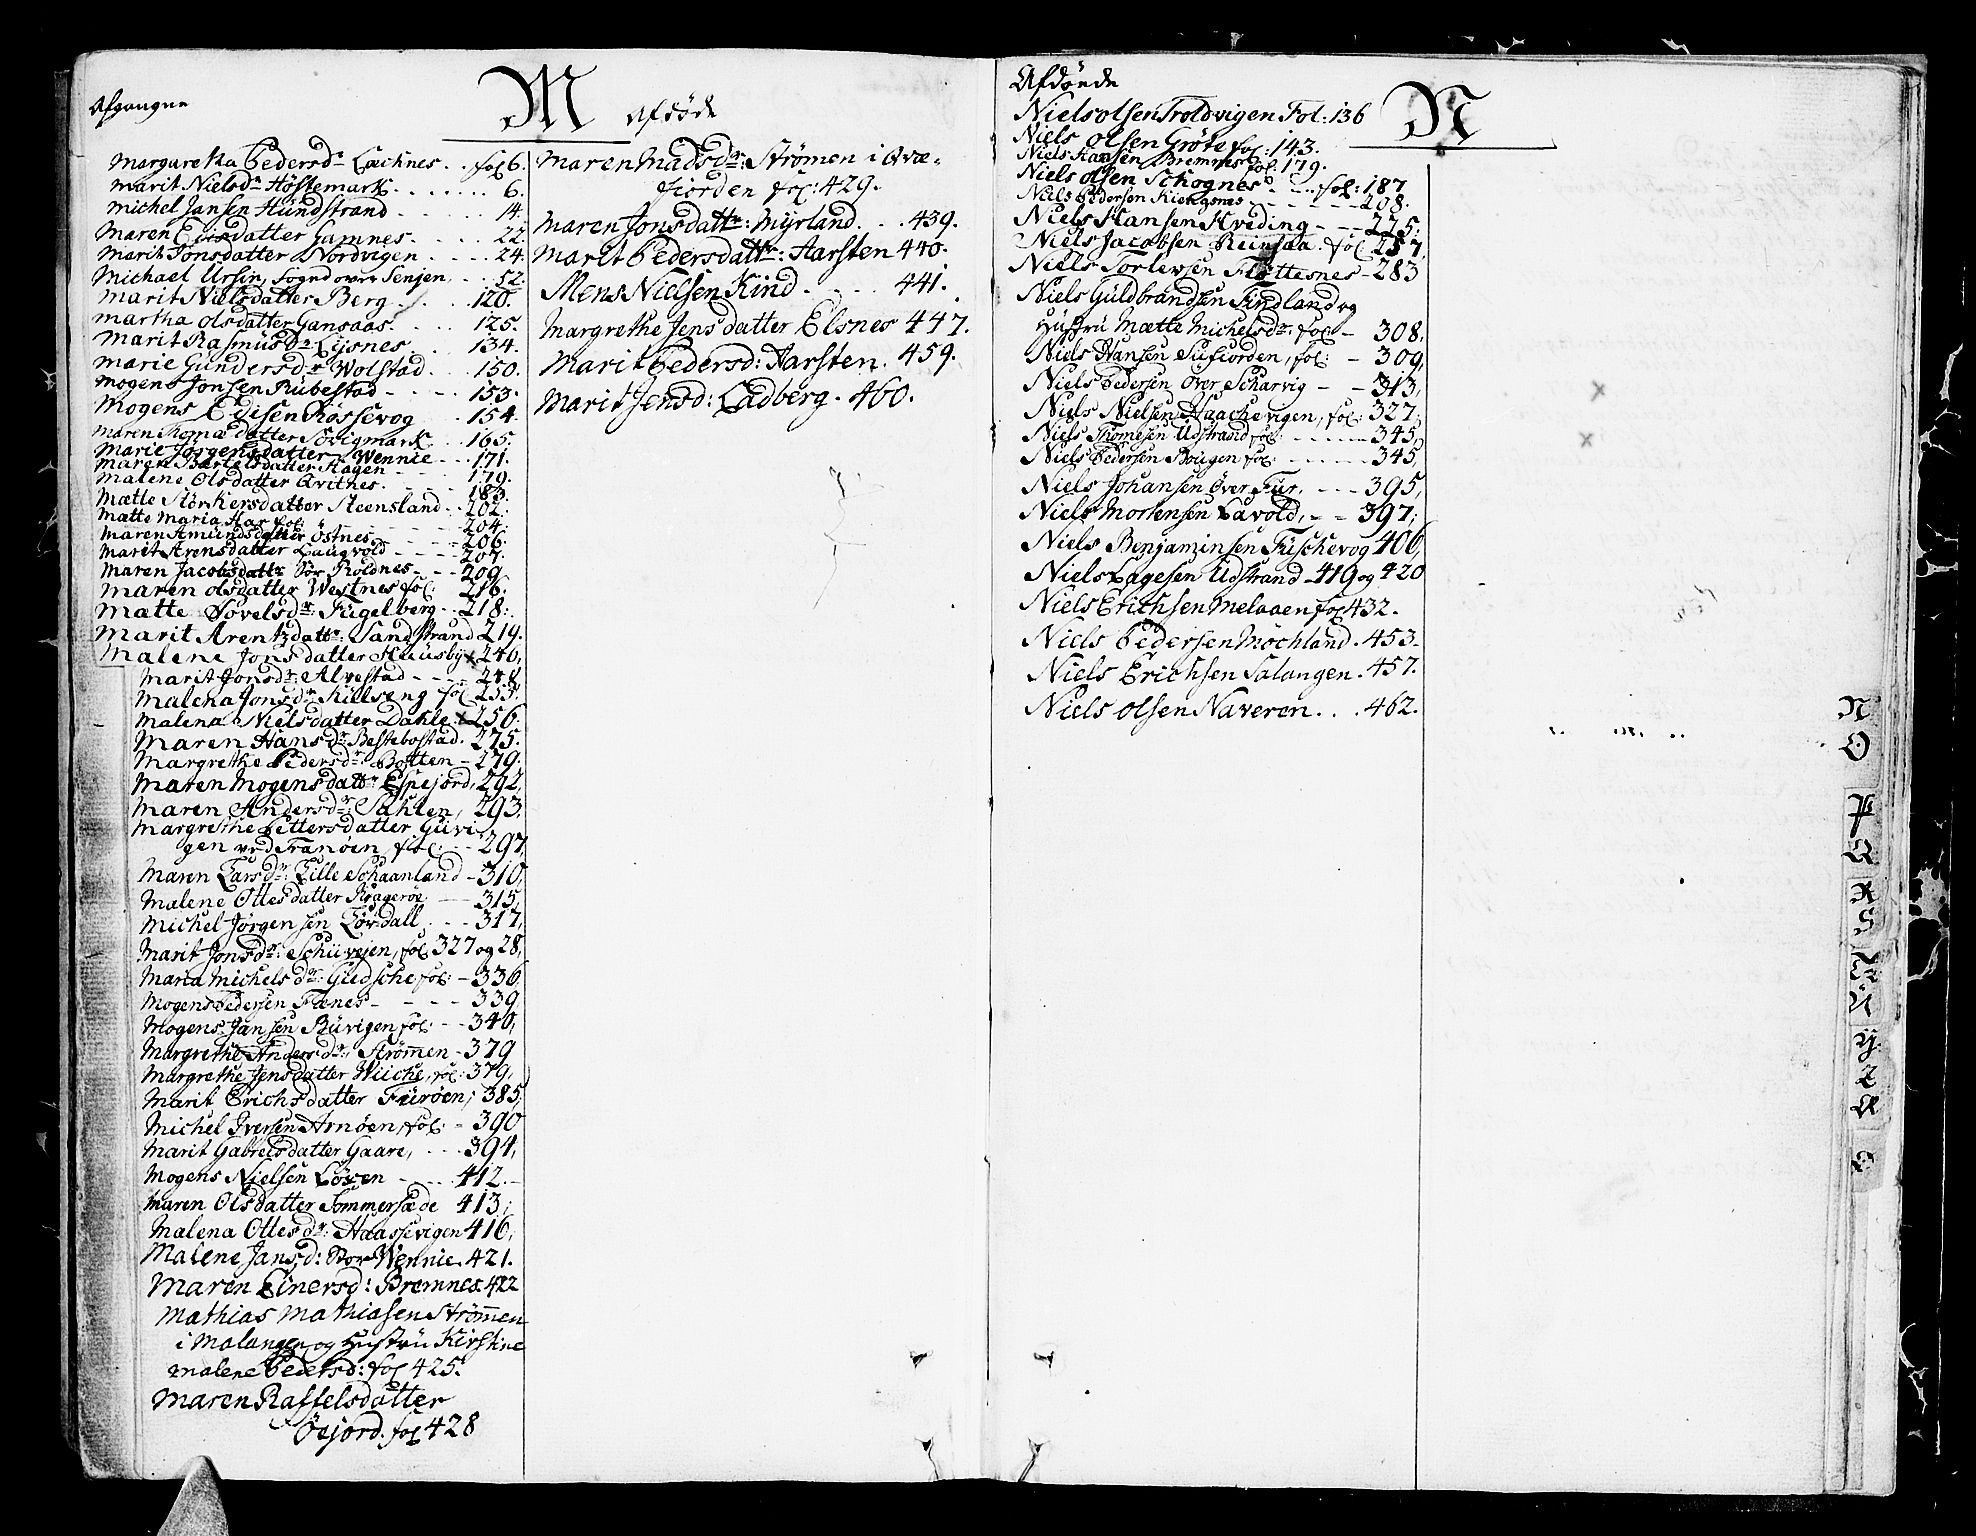 Afgangne
M
Afdøde
Margaretha Pedersdr Lachnes . . fol 6.
Marit Nielsdr Høstemark . . . . 6.
Michel Jansen Hundstrand . . . . 14.
Maren Erisdatter Gamnes . . . . 22.
Marit Jonsdatter Nordvigen . . . . 24.
Michael Ursin, Sogned over Senjen . . 52.
Marit Nielsdatter Berg . . . 120.
Martha Olsdatter Gansaas . . . 125.
Marit Rasmusdr Lysnes . . 134.
Marie Gundersdr Wolstad . . . 150.
Mogens Jonsen Rubestad - - - - 153.
Mogens Edisen Rossevog . . 154.
Maren Thomædatter Sørigmark . . 165.
Marie Jørgensdatter Wennie - - - 171.
Maren Bartelsdatter Hagen - - -
Malene Olsdatter Qvitnes . - - - 179.
183.
Mætte Størkersdatter Steensland . . 202.
Mætte Maria Har fol: 204.
Maren Amundsdatter Østnes - - - 206.
Marit Arensdatter Laugvold - - - - 207.
Maren Jacobsdattr Sør Roldnes - - - 209.
Maren Olsdatter Westnes fol: 216.
Mætte Povelsdr: Fugelberg . . 218.
Marit Arentzdattr: Sandstrand 219.
Malene Jonsdatter Huusby 240,
Marit Jonsdr: Alvestad - - - - 248
Malena Jonsdr: Kilseng fol 255.
Malena Nielsdatter Dahle 256.
Maren Hansdr: Bestebostad . 275.
Margrethe Pedersdr: Botten - 279.
Maren Mogensdattr Espejord, 292,
Maren Andersdr: Sahlen, 293.
Margrethe Pettersdatter Guvi
gen ved Tranøen, fol: - - 297,
Maren Larsdr: Lille Schaanland - 310,
Malene Ottesdatter Kragerøe - 315,
Michel Jørgensen Lørdall . - - 317,
Marit Jonsdr: Schuvejen, fol 327 og 28,
Maria Michelsdr: Gudsche fol: - 336,
Mogens Pedersen Flænes - - - - 339
Mogens Jansen Buvigen fol: - - 340,
Margrethe Andersdr: Strømen - 379
Margrethe Jensdatter Wiiche, fol: 379,
Marit Erichsdatter Furøen, 385,
Michel Iversen Arnøen, fol: - 390
Marit Gabrelsdatter Gaare, . - - 394,
Mogens Nielsen Løven - - - 412. -
Maren Olsdatter Sommersæde 413,
Malena Ottesdr: Haassevigen 416,
Malene Jansd: Stor Wennie. 421.
Maren Einersd: Bremnes. 422
Mathias Mathiasen Strømen
i Malangen og Hustru Kirstine
Malene Pedersd: fol 425.
Maren Raffelsdatter
Øejord. fol 428
Maren Madsdr: Strømen i Qvæ-
fiorden fol: 429.
Maren Jonsdattr: Myrland. . . 439.
Marit Pedersdattr: Harsten 440.
Mens Nielsen Kind . - . . . 441.
Margrethe Jensdatter Elsnes 447.
Marit Pedersd: Harsten. 459.
Marit Jensd: Ladberg. 460.
Afdøede
N
Niels Olsen Troldvigen Fol: 136
Niels Olsen Grøte fol: 143.
Niels Hansen Bremnes fol: 179.
Niels Olsen Schognes - . . . fol: 187
Niels Pedersen - - - - - - 208.
Niels Hansen Hveding - - - 275.
Niels Jacobsen Reinsaa . fol 257,
Niels Torlevsen Flottesnes - 283
Niels Guldbrandsen Findland og
Hustru Mætte Michelsdr: fol - 308,
Niels Hansen Sufiorden, fol: - 309,
Niels Pedersen Øver Scharvig - - 313,
Niels Nielsen Haachevigen, fol: 327,
Niels Thomesen Udstrand fol: - - - - - 345,
Niels Pedersen Bougen fol: - - - - - 345,
Niels Johansen Øver Fur, - - - 395,
Niels Mortensen Lavold, - - 397,
Niels Benjaminsen Fischevog 406,
Niels Lagesen Udstrand - 419 og 420
Niels Erichsen Melaaen fol 432.
Niels Pedersen Mochland. 453-
Niels Erichsen Salangen. 457.
Niels Olsen Naveren. . . 462.
N
O
P
Q
R
S
T
U
Y
Z
Æ
Ø